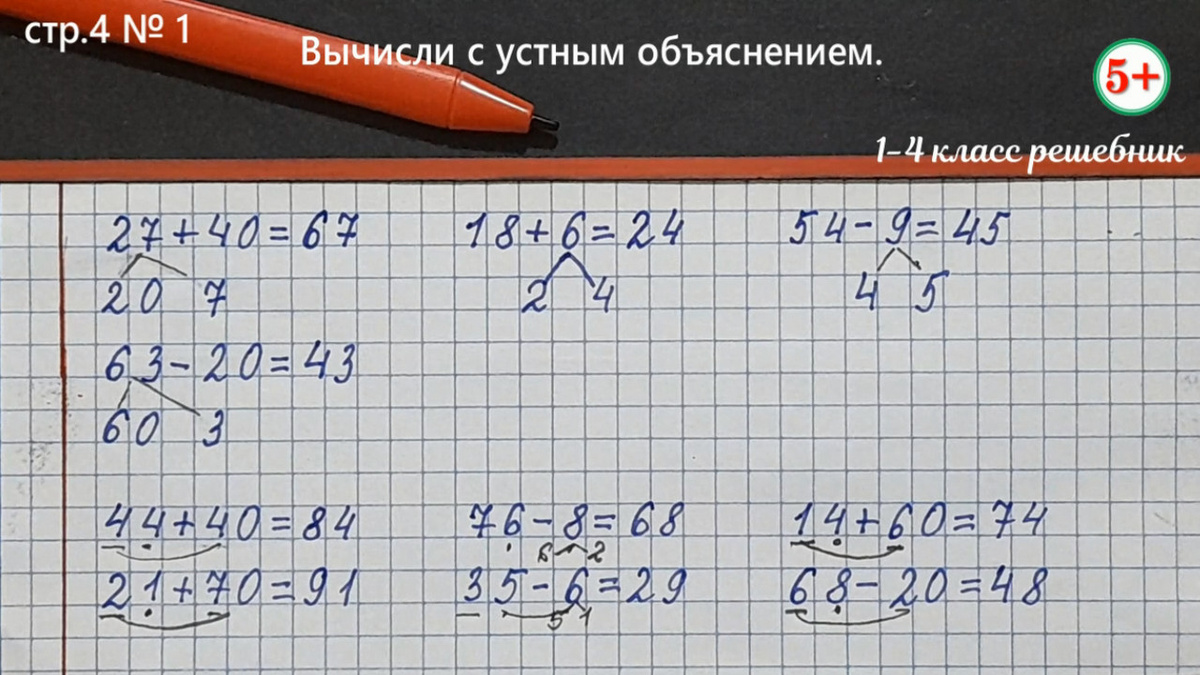 стр.4 № 1
Вычисли с устным объяснением.
5+
1-4 класс решебник
27+40=67 18+6=24 54-9=45
20 7 2 4 4 5
63-20=43
60 3
44+40=84 76-8=68 14+60=74
6 2
21+70=91 35-6=29 68-20=48
5 1